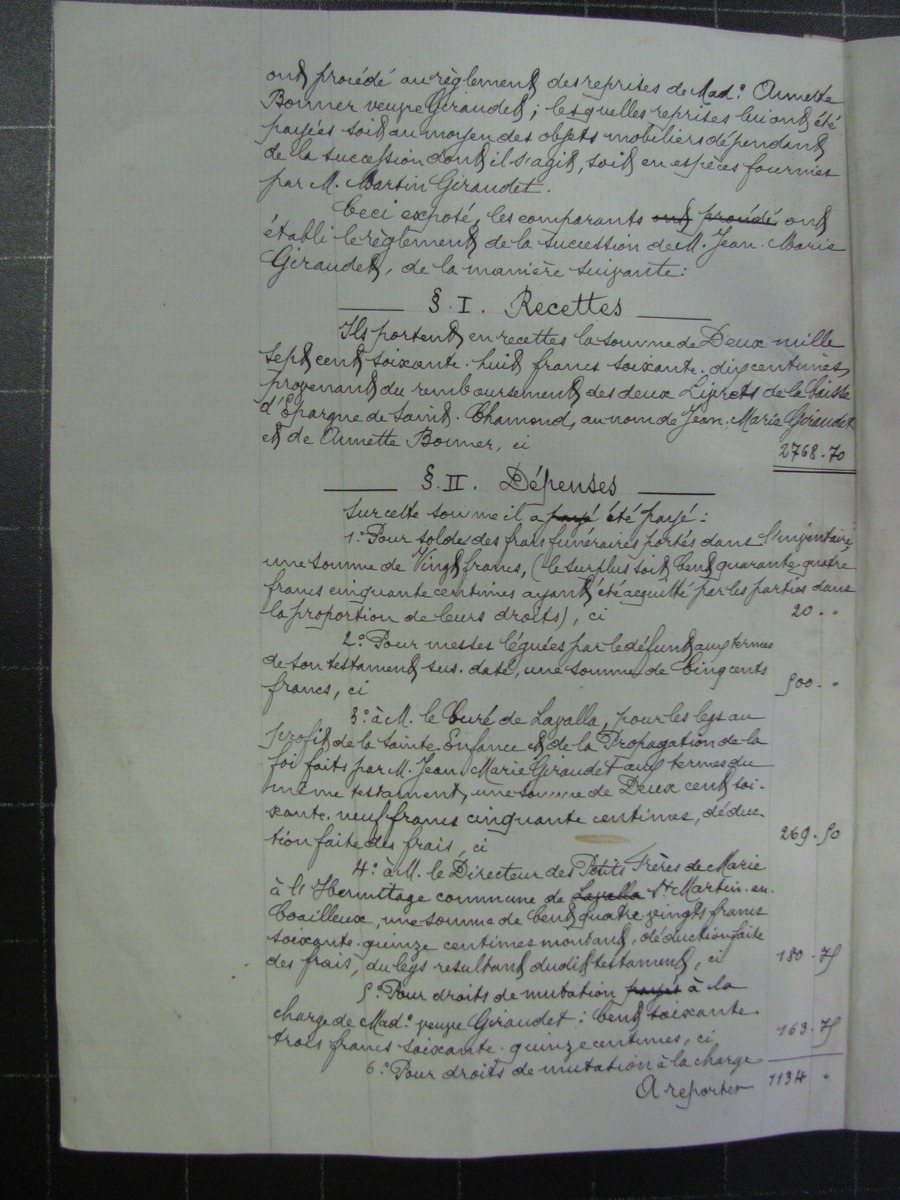 ont procédé au règlement des reprises de Mad.e Annette
Bonner veuve Giraudet; lesquelles reprises lui ont été
payées soit au moyen des objets mobiliers dépendant
de la succession dont il s'agit, soit en espèces fournies
par M. Martin Giraudet.
Ceci exposé, les comparants ont procédé ont
établi le règlement de la succession de M. Jean-Marie
Giraudet, de la manière suivante:
§. I. Recettes
Ils portent en recettes la somme de Deux mille
sept cent soixante-huit francs soixante-dix centimes,
provenant du remboursement des deux Livrets de la Caisse
d'Epargne de Saint-Chamond, au nom de Jean-Marie Giraudet
et de Annette Bonner, ci 2768-70
§. II. Dépenses
Sur cette somme il a payé été payé:
1.° Pour solde des frais funéraires portés dans l'inventaire
une somme de Vingt francs, (le surplus soit Cent quarante quatre
francs cinquante centimes ayant été acquitté par les parties dans
la proportion de leurs droits), ci 20 - "
2.° Pour messes léguées par le défunt aux termes
de son testament sus-daté, une somme de Cinq cents
francs, ci 500 - "
3.° à M. le Curé de Lavalla, pour les legs au
profit de la Sainte Enfance et de la Propagation de la
foi faits par M. Jean Marie Giraudet aux termes du
même testament, une somme de Deux cent soi-
xante-neuf francs cinquante centimes, déduc-
tion faite des frais, ci 269-50
4.° à M. le Directeur des Petits Frères de Marie
à l'Hermitage commune de Lavalla St Martin-en-
Coailleux, une somme de Cent quatre vingts francs
soixante-quinze centimes montant, déduction faite
des frais, du legs résultant dudit testament, ci 180-75
5.° Pour droits de mutation payés à la
charge de Mad.e veuve Giraudet: Cent soixante-
trois francs soixante-quinze centimes, ci 163-75
6.° Pour droits de mutation à la charge
A reporter 1134 "